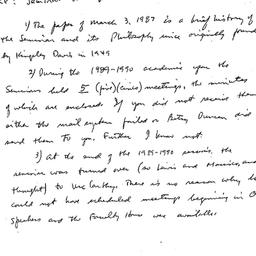 1) The paper of March 3, 1987 is a brief history of
the Seminar and its Philosophy since originally found
by Kingsley Davis in 1949
2) During the 1989-1990 academic year the
Seminar held 5 (five) meetings, the minutes
of which are enclosed. If you did not receive them
either the mail system failed or Betsy Duncan did
send them to you. Further I know not.
3) At the end of the 1989-1990 session, the
seminar was turned over (so Lewis and Maurice, and
thought) to McCarthy. There is no reason why he
could not have scheduled meetings beginning in O
Speakers and the Faculty House was available.